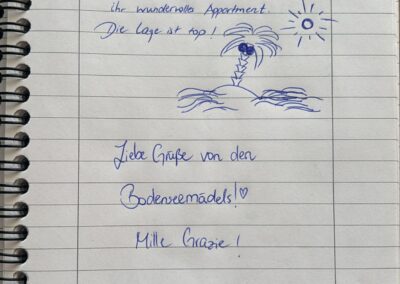 ihr wundervolles Appartment.
Die Lage ist top!
Liebe Grüße von den
Bodenseemädels!♡
Mille Grazie!